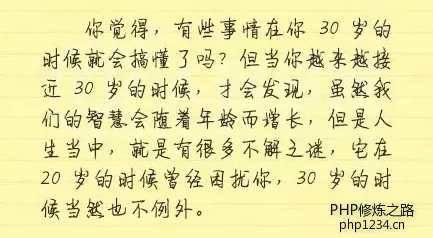 你觉得，有些事情在你 30 岁的
时候就会搞懂了吗？但当你越来越接
近 30 岁的时候，才会发现，虽然我
们的智慧会随着年龄而增长，但是人
生当中，就是有很多不解之谜，它在
20 岁的时候曾经困扰你，30 岁的时
候当然也不例外。
PHP修炼之路
php1234.cn